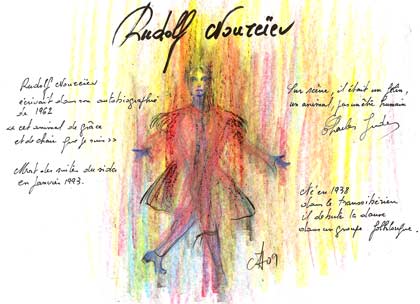 Rudolf Noureïev
Rudolf Noureïev
écrivait dans son autobiographie
de 1962
« cet animal de grâce
et de chair que je suis »
Mort des suites du sida
en janvier 1993.
Sur scène, il était un félin,
un animal, pas un être humain
Charles Jude
Né en 1938
dans le transsibérien
il débute la danse
dans un groupe folklorique.
09